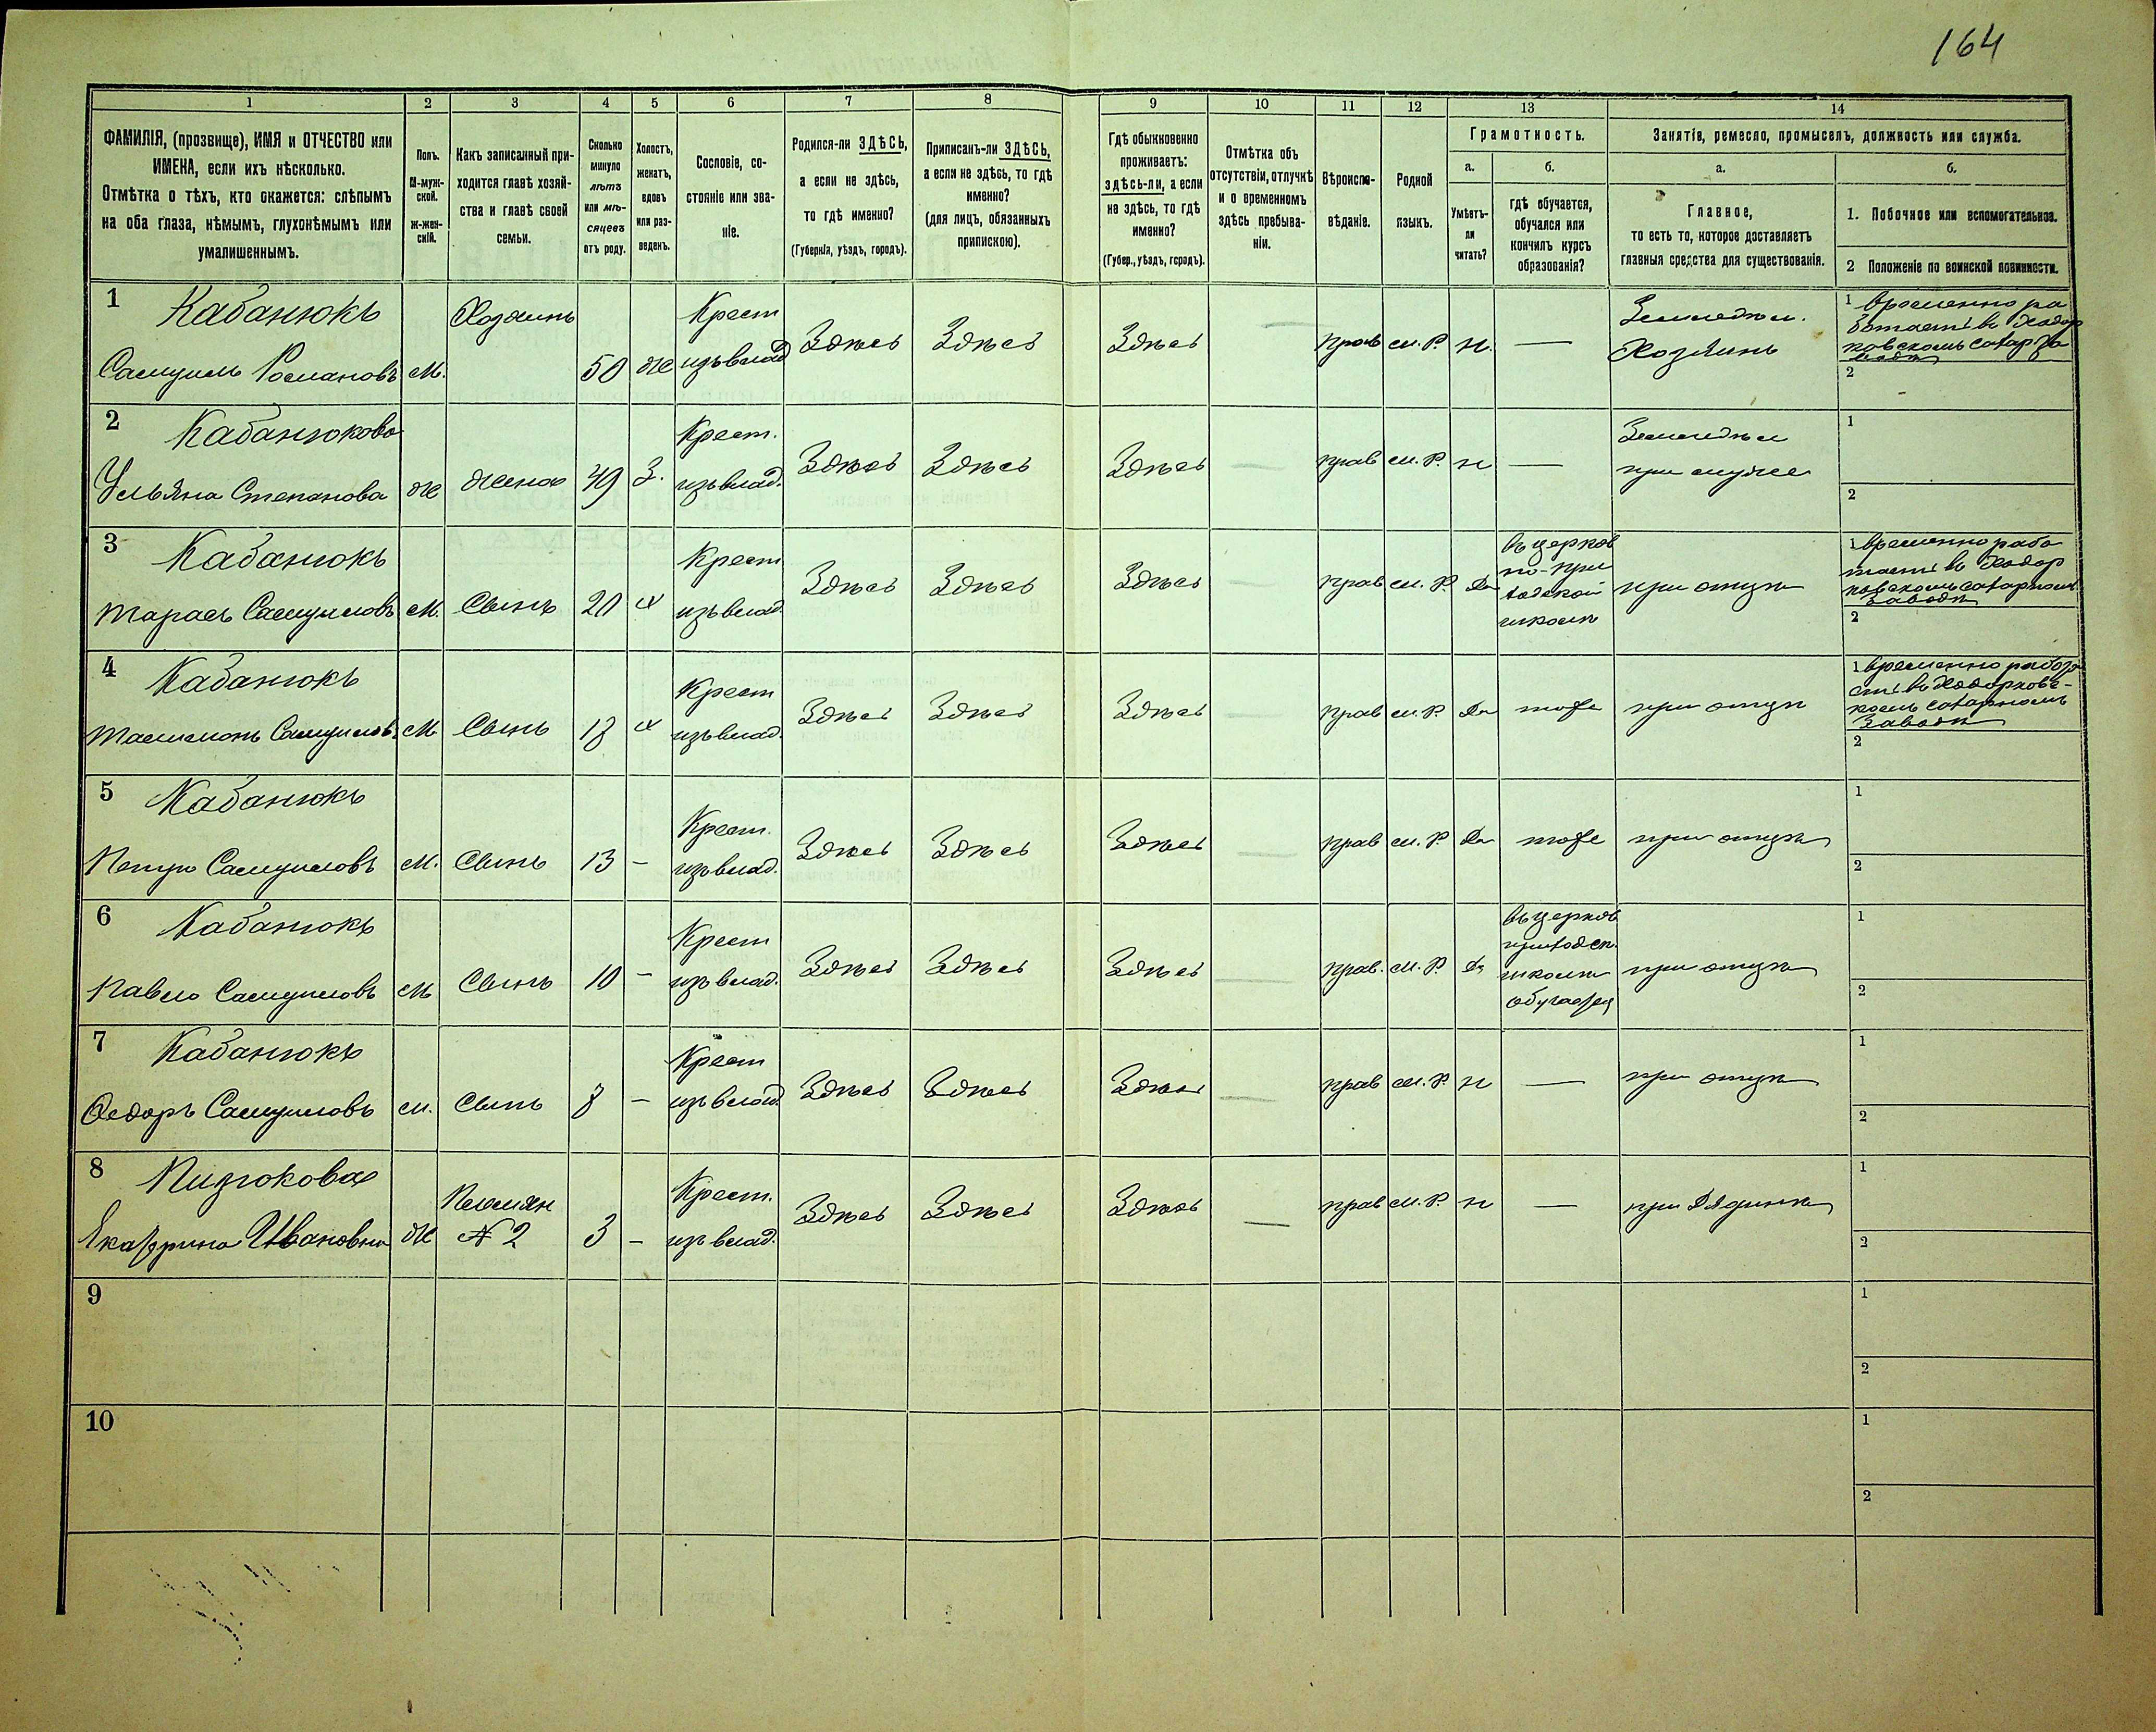 164
1 2 3 4 5 6 7 8 9 10 11 12 13 14
ФАМИЛІЯ, (прозвище), ИМЯ и ОТЧЕСТВО или
ИМЕНА, если ихъ нѣсколько.
Отмѣтка о тѣхъ, кто окажется: слѣпымъ
на оба глаза, нѣмымъ, глухонѣмымъ или
умалишеннымъ.
Полъ.
М-муж-
ской.
Ж-жен-
скій.
Какъ записанный при-
ходится главѣ хозяй-
ства и главѣ своей
семьи.
Сколько
минуло
лѣтъ
или мѣ-
сяцевъ
отъ роду.
Холостъ,
женатъ,
вдовъ
или раз-
веденъ.
Сословіе, со-
стояніе или зва-
ніе.
Родился-ли ЗДѢСЬ,
а если не здѣсь,
то гдѣ именно?
(Губернія, уѣздъ, городъ).
Приписанъ-ли ЗДѢСЬ,
а если не здѣсь, то гдѣ
именно?
(для лицъ, обязанныхъ
припискою).
Гдѣ обыкновенно
проживаетъ:
здѣсь-ли, а если
не здѣсь, то гдѣ
именно?
(Губер., уѣздъ, городъ).
Отмѣтка объ
отсутствіи, отлучкѣ
и о временномъ
здѣсь пребыва-
ніи.
Вѣроиспо-
вѣданіе.
Родной
языкъ.
Грамотность.
а.
Умѣетъ-
ли
читать?
б.
гдѣ обучается,
обучался или
кончилъ курсъ
образованія?
Занятія, ремесло, промыселъ, должность или служба.
а.
Главное,
то есть то, которое доставляетъ
главныя средства для существованія.
б.
1. Побочное или вспомогательное.
2 Положеніе по воинской повинности.
1 Кабанюкъ
Самуилъ Романовъ
м.
Хозяинъ
50
же
Крест
изъ влад
Здѣсь
Здѣсь
Здѣсь
—
прав
м. Р.
н.
—
Земледѣл.
Хозяинъ
1 Временно ра
ботаетъ въ Ходор
ковскомъ сахар за
водѣ
2
2 Кабанюкова
Ульяна Степанова
же
жена
49
З.
Крест.
изъ влад.
Здѣсь
Здѣсь
Здѣсь
—
прав
м. Р.
н
—
Земледѣл
при мужѣ
1
2
3 Кабанюкъ
Тарасъ Самуиловъ
м.
Сынъ
20
х
Крест
изъ влад
Здѣсь
Здѣсь
Здѣсь
—
прав
м. Р.
Да
въ церков
но-при
ходской
школѣ
при отцѣ
1 временно рабо
таетъ въ Ходор
ковскомъ сахарномъ
Заводѣ
2
4 Кабанюкъ
Самуилов.
м
Сынъ
18
х
Крест
изъ влад.
Здѣсь
Здѣсь
Здѣсь
—
прав
м. Р.
Да
тоже
при отцѣ
1 временно работа
етъ въ Ходорковс-
комъ сахарномъ
Заводѣ
2
5 Кабанюкъ
Петро Самуиловъ
м.
Сынъ
13
—
Крест.
изъ влад.
Здѣсь
Здѣсь
Здѣсь
—
прав
м. Р.
Да
тоже
при отцѣ
1
2
6 Кабанюкъ
Павло Самуиловъ
м
Сынъ
10
—
Крест
изъ влад.
Здѣсь
Здѣсь
Здѣсь
—
прав.
м. Р.
Да
въ церков
приходск.
школѣ
обучается
при отцѣ
1
2
7 Кабанюкъ
Ѳедоръ Самуиловъ
м.
Сынъ
8
—
Крест
изъ влад.
Здѣсь
Здѣсь
Здѣсь
—
прав
м. Р.
н
—
при отцѣ
1
2
8
Екатерина Ивановна
же
Племян
№ 2
3
—
Крест.
изъ влад.
Здѣсь
Здѣсь
Здѣсь
—
прав
м. Р.
н
—
при
1
2
9
1
2
10
1
2